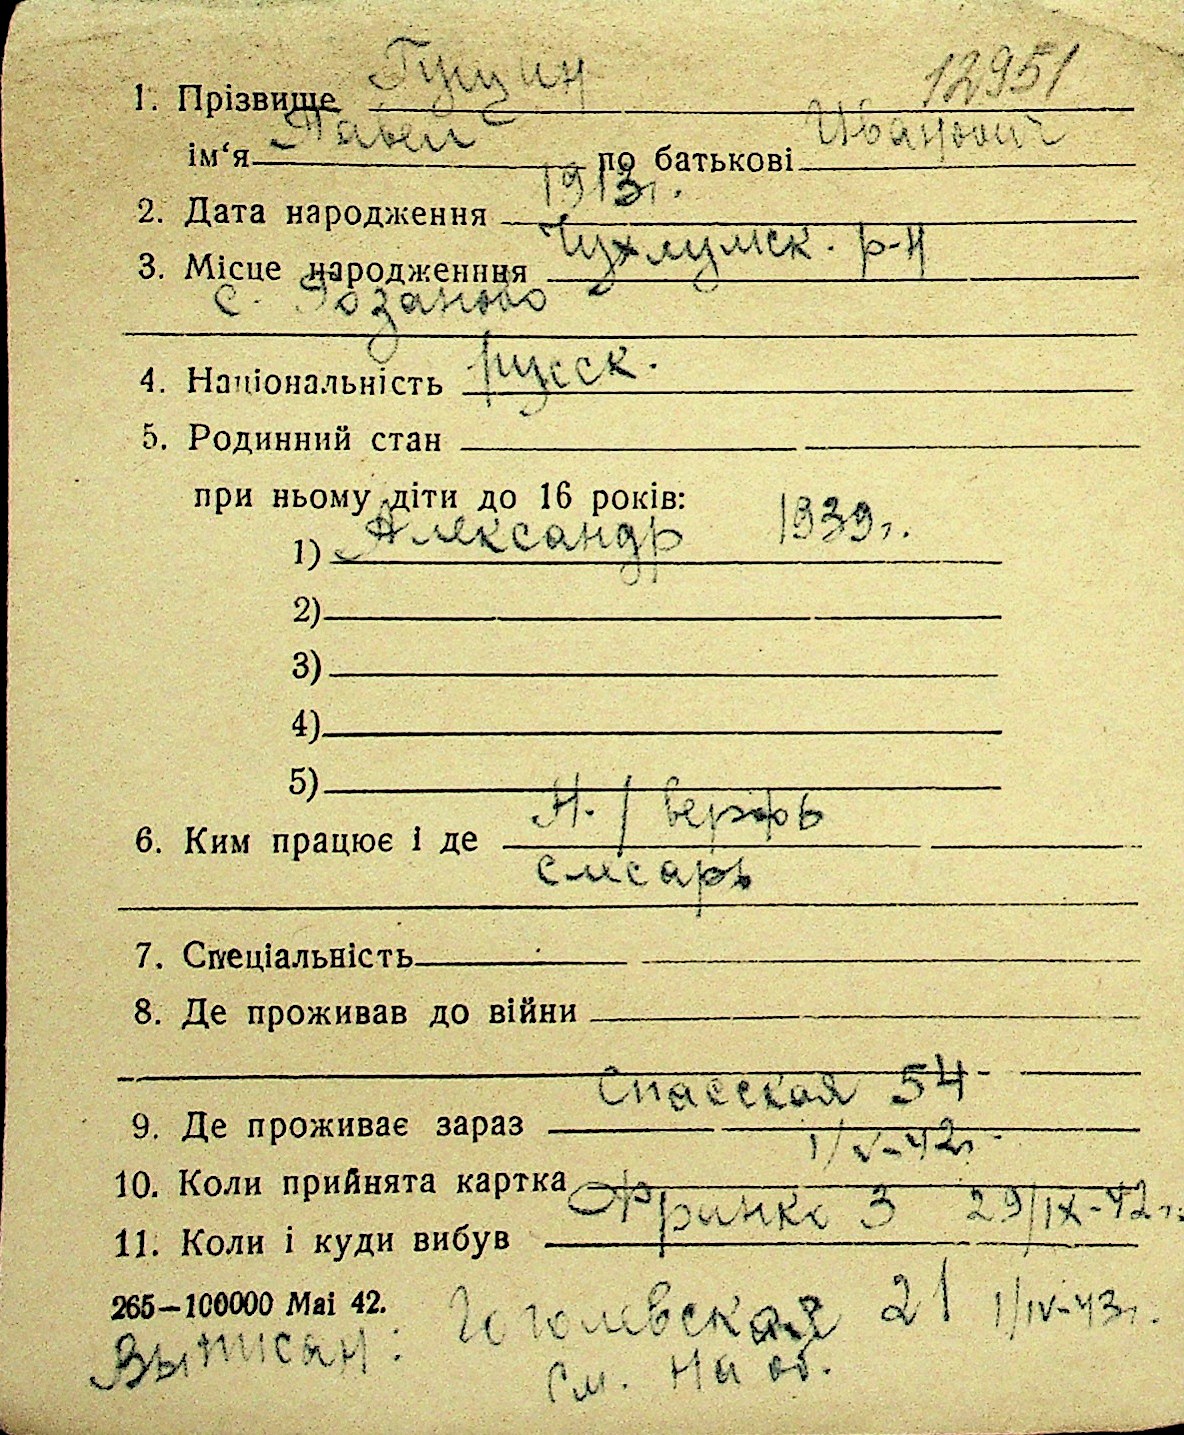 1. Прізвище Гущин 12951
ім‘я Павел по батькові Иванович
2. Дата народження 1913г.
3. Місце народженння Чухломск. р-н
с. Розаново
4. Національність русск.
5. Родинний стан
при ньому діти до 16 років:
1) Александр 1939г.
2)
3)
4)
5)
6. Ким працює і де Н. / верфь
слесарь
7. Спеціальність
8. Де проживав до війни
9. Де проживає зараз Спасская 54
10. Коли прийнята картка 1/V-42г.
11. Коли і куди вибув Франко 3 29/IX-42г.
265—100000 Mai 42. Гоголевская 21 1/IV-43г.
Выписан:
См. на об.